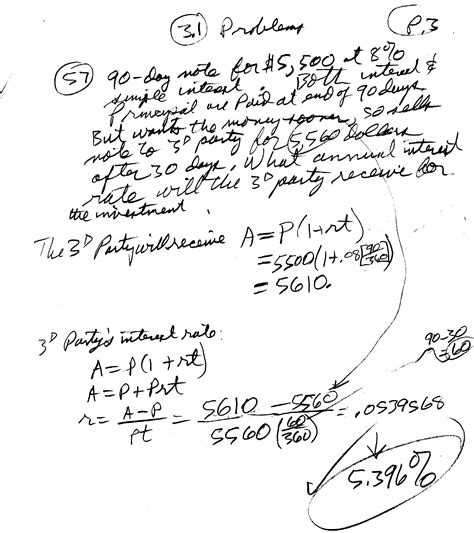 3.1 Problems P.3
57 90-day note for $5,500 at 8%
simple interest. Both interest &
Principal are Paid at end of 90 days.
But wants the money sooner, so sells
note to 3D party for 5,560 dollars
after 30 days. What annual interest
rate will the 3D party receive for
the investment.
The 3D Party will receive A = P(1+rt)
= 5500(1+.08[90/360])
= 5610.
3D Party's interest rate:
90-30/360
A = P(1+rt)
A = P + Prt
r = A-P/Pt = 5610 - 5560/5560(60/360) = .0539568
5.396%